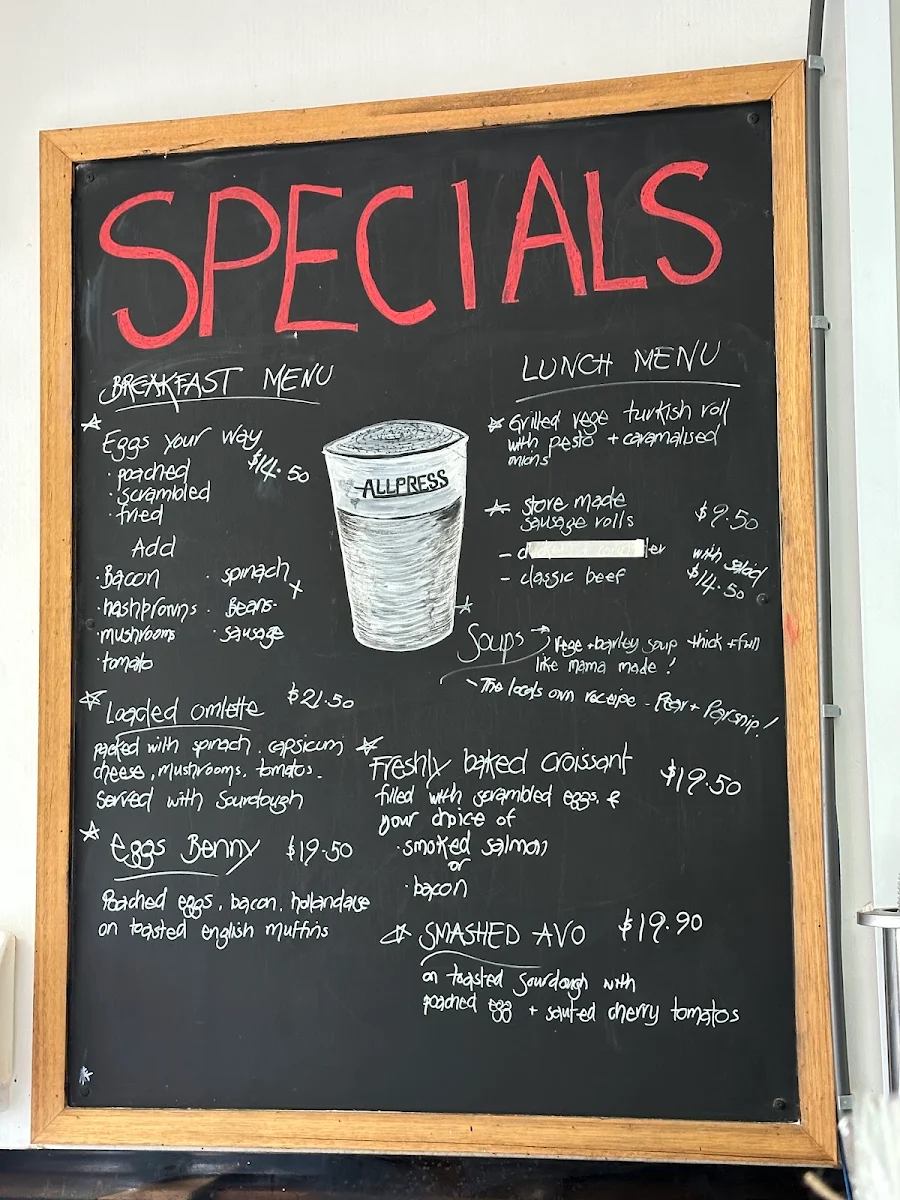 SPECIALS
BREAKFAST MENU
Eggs your way
$14.50
· poached
· scrambled
· fried
Add
· Bacon
· hashprowns
· mushrooms
· tomato
· spinach
· Beans
· sausage
Loaded omlette $21.50
packed with spinach, capsicum
cheese, mushrooms, tomatos.
Served with Sourdough
Eggs Benny $19.50
Poached eggs, bacon, holandaise
on toasted english muffins
ALLPRESS
LUNCH MENU
Grilled vege turkish roll
with pesto + caramalised
onions
store made
sausage rolls
$9.50
- classic beef
with salad
$14.50
Soups → vege + barley soup thick + full
like mama made!
- The locals own receipe - Pear + Parsnip!
Freshly baked croissant $19.50
filled with scrambled eggs, &
your choice of
· smoked salmon
or
· bacon
SMASHED AVO $19.90
on toasted sourdough with
poached egg + sauted cherry tomatos